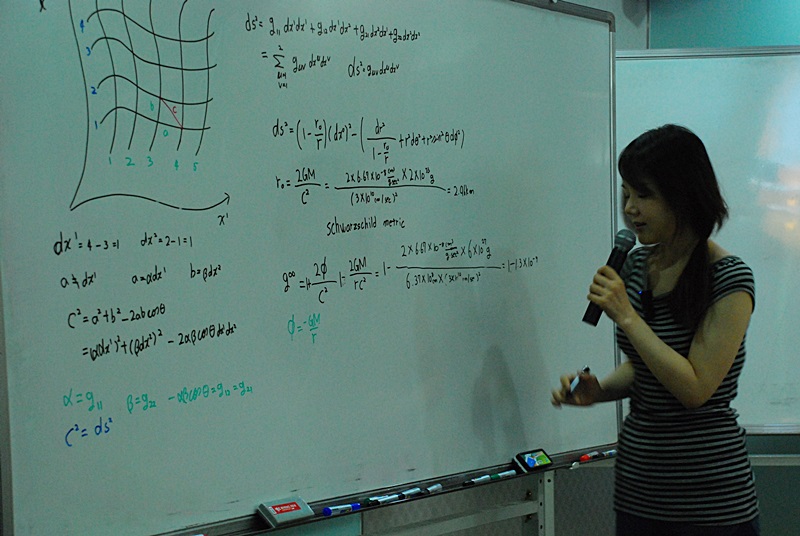 x
4
3
2
1
b c
a
1 2 3 4 5
x'
dx' = 4-3=1 dx² = 2-1=1
a≠dx' a=αdx' b=βdx²
c² = a²+b²-2ab cosθ
=α(dx')²+(βdx²)² - 2αβcosθdx'dx²
α=g₁₁ β=g₂₂ -αβcosθ=g₁₂=g₂₁
c² = ds²
ds² = g₁₁dx'dx' + g₁₂dx'dx² + g₂₁dx²dx' + g₂₂dx²dx²
= Σ gᵤᵥdxᵘdxᵛ ds²=gᵤᵥdxᵘdxᵛ
ds² = (1 - r₀/r)(dx⁰)² - (dr²/(1 - r₀/r) + r²dθ² + r²sin²θdφ²)
r₀ = 2GM/c² = 2×6.67×10⁻⁸ cm³/g sec² × 2×10³³g / (3×10¹⁰cm/sec)² = 2.96km
schwarzschild metric
g⁰⁰ = 1+ 2φ/c² = 1- 2GM/rc² = 1- 2×6.67×10⁻⁸ cm³/g sec² × 6×10²⁷g / 6.37×10⁸cm×(3×10¹⁰cm/sec)² = 1-1.3×10⁻⁹
φ = -GM/r